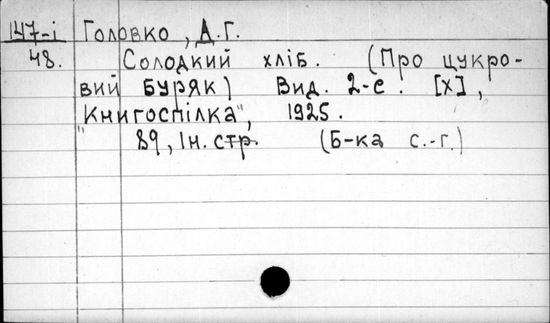 147-і Головко, А.Г.
48. Солодкий хліб. (Про цукро-
вий буряк) Вид. 2-е. [Х],
"Книгоспілка", 1925.
89, Ін. стр. (Б-ка с.-г.)